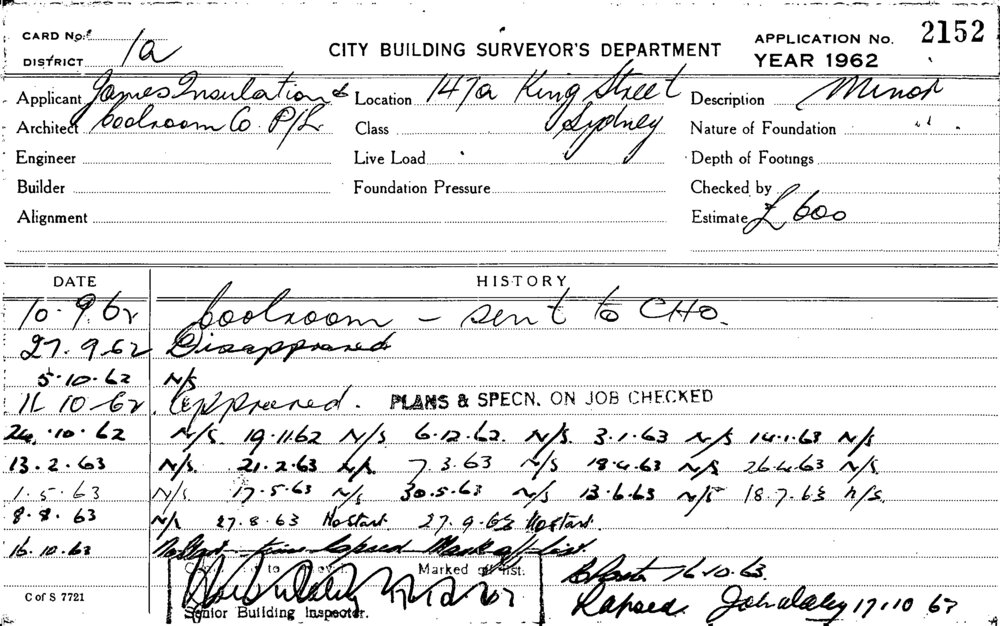 CARD No.
DISTRICT 1a
CITY BUILDING SURVEYOR'S DEPARTMENT
APPLICATION No. 2152
YEAR 1962
Applicant James Insulation &
Architect Coolroom Co P/L
Engineer
Builder
Alignment
Location 147a King Street
Class Sydney
Live Load
Foundation Pressure
Description Minor
Nature of Foundation " .
Depth of Footings
Checked by
Estimate £600
DATE HISTORY
10.9.62 Coolroom - sent to CHO.
27.9.62 Disapproved
5.10.62 N/S
11 10-62. Approved. PLANS & SPECN. ON JOB CHECKED
24.10.62 N/S. 19.11.62 N/S 6.12.62. N/S. 3.1.63 N/S 14.1.63 N/S
13.2.63 N/S. 21.2.63 N/S. 7.3.63 N/S 18.4.63 N/S 26.4.63 N/S.
1.5.63 N/S 17.5.63 N/S 30.5.63 N/S 13.6.63 N/S 18.7.63 N/S.
8.8.63 N/S 27.8.63 No start. 27.9.63 No start.
16.10.63 No Start - time lapsed Mark off list.
to Marked off list.
16.10.63.
Senior Building Inspector.
Lapsed. 17.10 63
C of S 7721